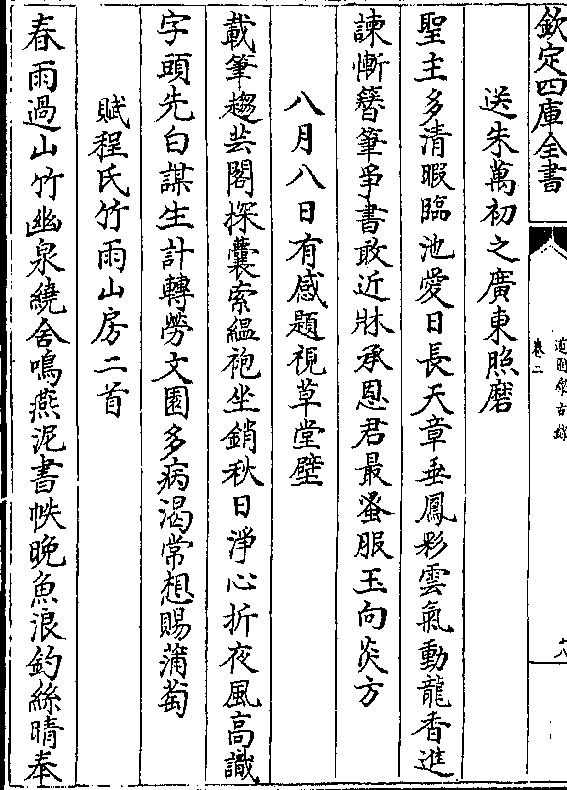 欽定四庫全書
道園學古錄
卷二
十八
送朱萬初之廣東照磨
聖主多清暇臨池愛日長天章垂鳳彩雲氣動龍香進
諫慚簪筆爭書敢近牀承恩君最蚤服玉向炎方
八月八日有感題視草堂壁
載筆趨芸閣探囊索緼袍坐銷秋日淨心折夜風高識
字頭先白謀生計轉勞文園多病渴常想賜蒲萄
賦程氏竹雨山房二首
春雨過山竹幽泉繞舍鳴燕泥書帙晚魚浪釣絲晴奉